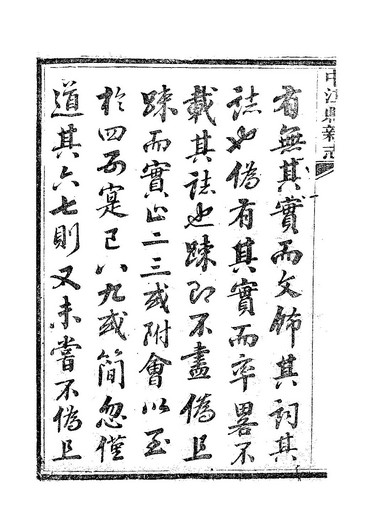 中江縣新志
有無其實而文飾其詞其
誌也偽有其實而率畧不
載其誌也踈即不盡偽且
踈而實止二三或附會以至
於四五寔已八九或簡忽僅
道其六七則又未嘗不偽且